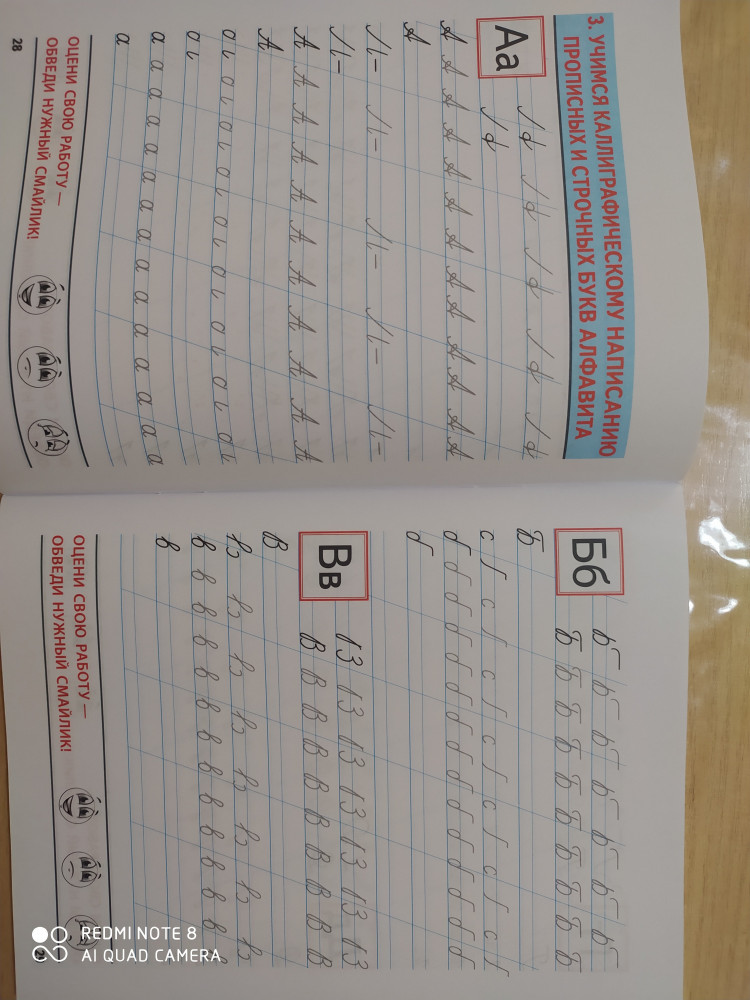 3. УЧИМСЯ КАЛЛИГРАФИЧЕСКОМУ НАПИСАНИЮ
ПРОПИСНЫХ И СТРОЧНЫХ БУКВ АЛФАВИТА
Аа
А А А А А А А А А А А
А
А А А А А А А А А А А
А
а а а а а а а а а а а а
а
ОЦЕНИ СВОЮ РАБОТУ —
ОБВЕДИ НУЖНЫЙ СМАЙЛИК!
28
Бб
Б Б Б Б Б Б Б Б Б Б
Б
б б б б б б б б б б б б б
б
Вв
В В В В В В В В В В
В
в в в в в в в в в в в в в
в
ОЦЕНИ СВОЮ РАБОТУ —
ОБВЕДИ НУЖНЫЙ СМАЙЛИК!
REDMI NOTE 8
AI QUAD CAMERA